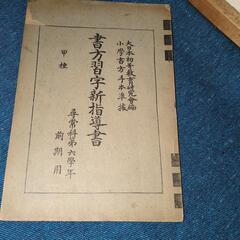 大日本初等教育研究會編
小學書方手本準據
書方習字新指導書
甲種
尋常科第六學年
前期用